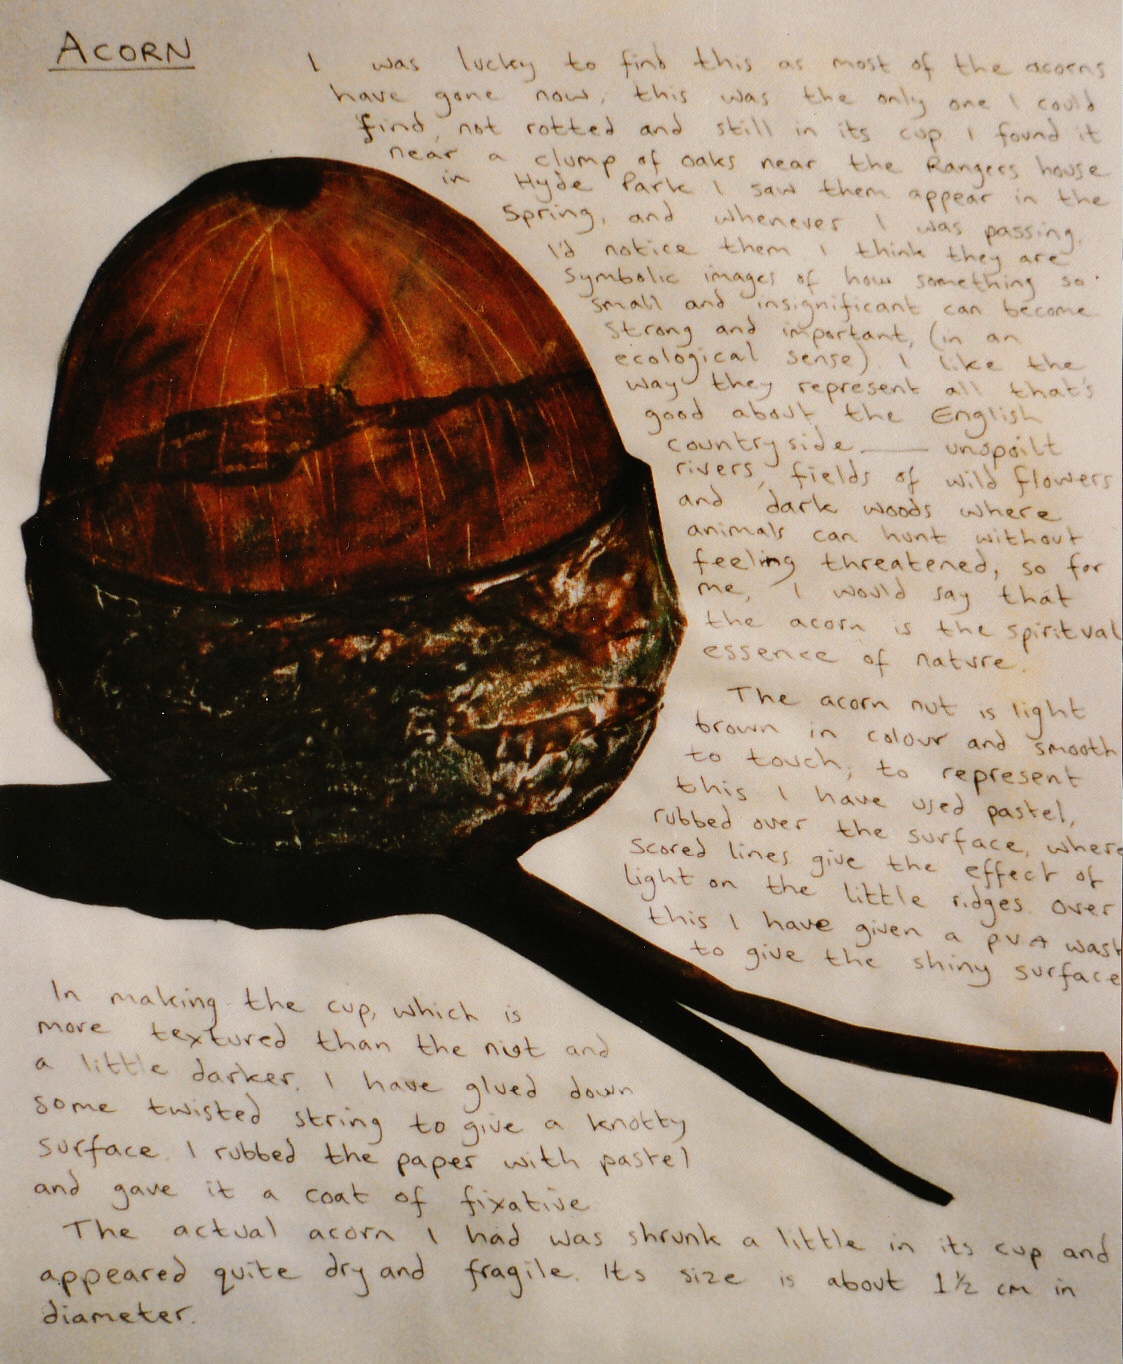 ACORN
I was lucky to find this as most of the acorns
have gone now, this was the only one I could
find, not rotted and still in its cup I found it
near a clump of oaks near the Rangers house
in Hyde Park I saw them appear in the
Spring, and whenever I was passing,
I'd notice them I think they are
symbolic images of how something so
small and insignificant can become
strong and important, (in an
ecological sense) I like the
way they represent all that's
good about the English
countryside —— unspoilt
rivers, fields of wild flowers
and dark woods where
animals can hunt without
feeling threatened, so for
me, I would say that
the acorn is the spiritual
essence of nature.
The acorn nut is light
brown in colour and smooth
to touch, to represent
this I have used pastel,
rubbed over the surface, where
scored lines give the effect of
light on the little ridges. Over
this I have given a PVA wash
to give the shiny surface
In making the cup, which is
more textured than the nut and
a little darker, I have glued down
some twisted string to give a knotty
surface. I rubbed the paper with pastel
and gave it a coat of fixative.
The actual acorn I had was shrunk a little in its cup and
appeared quite dry and fragile. Its size is about 1½ cm in
diameter.